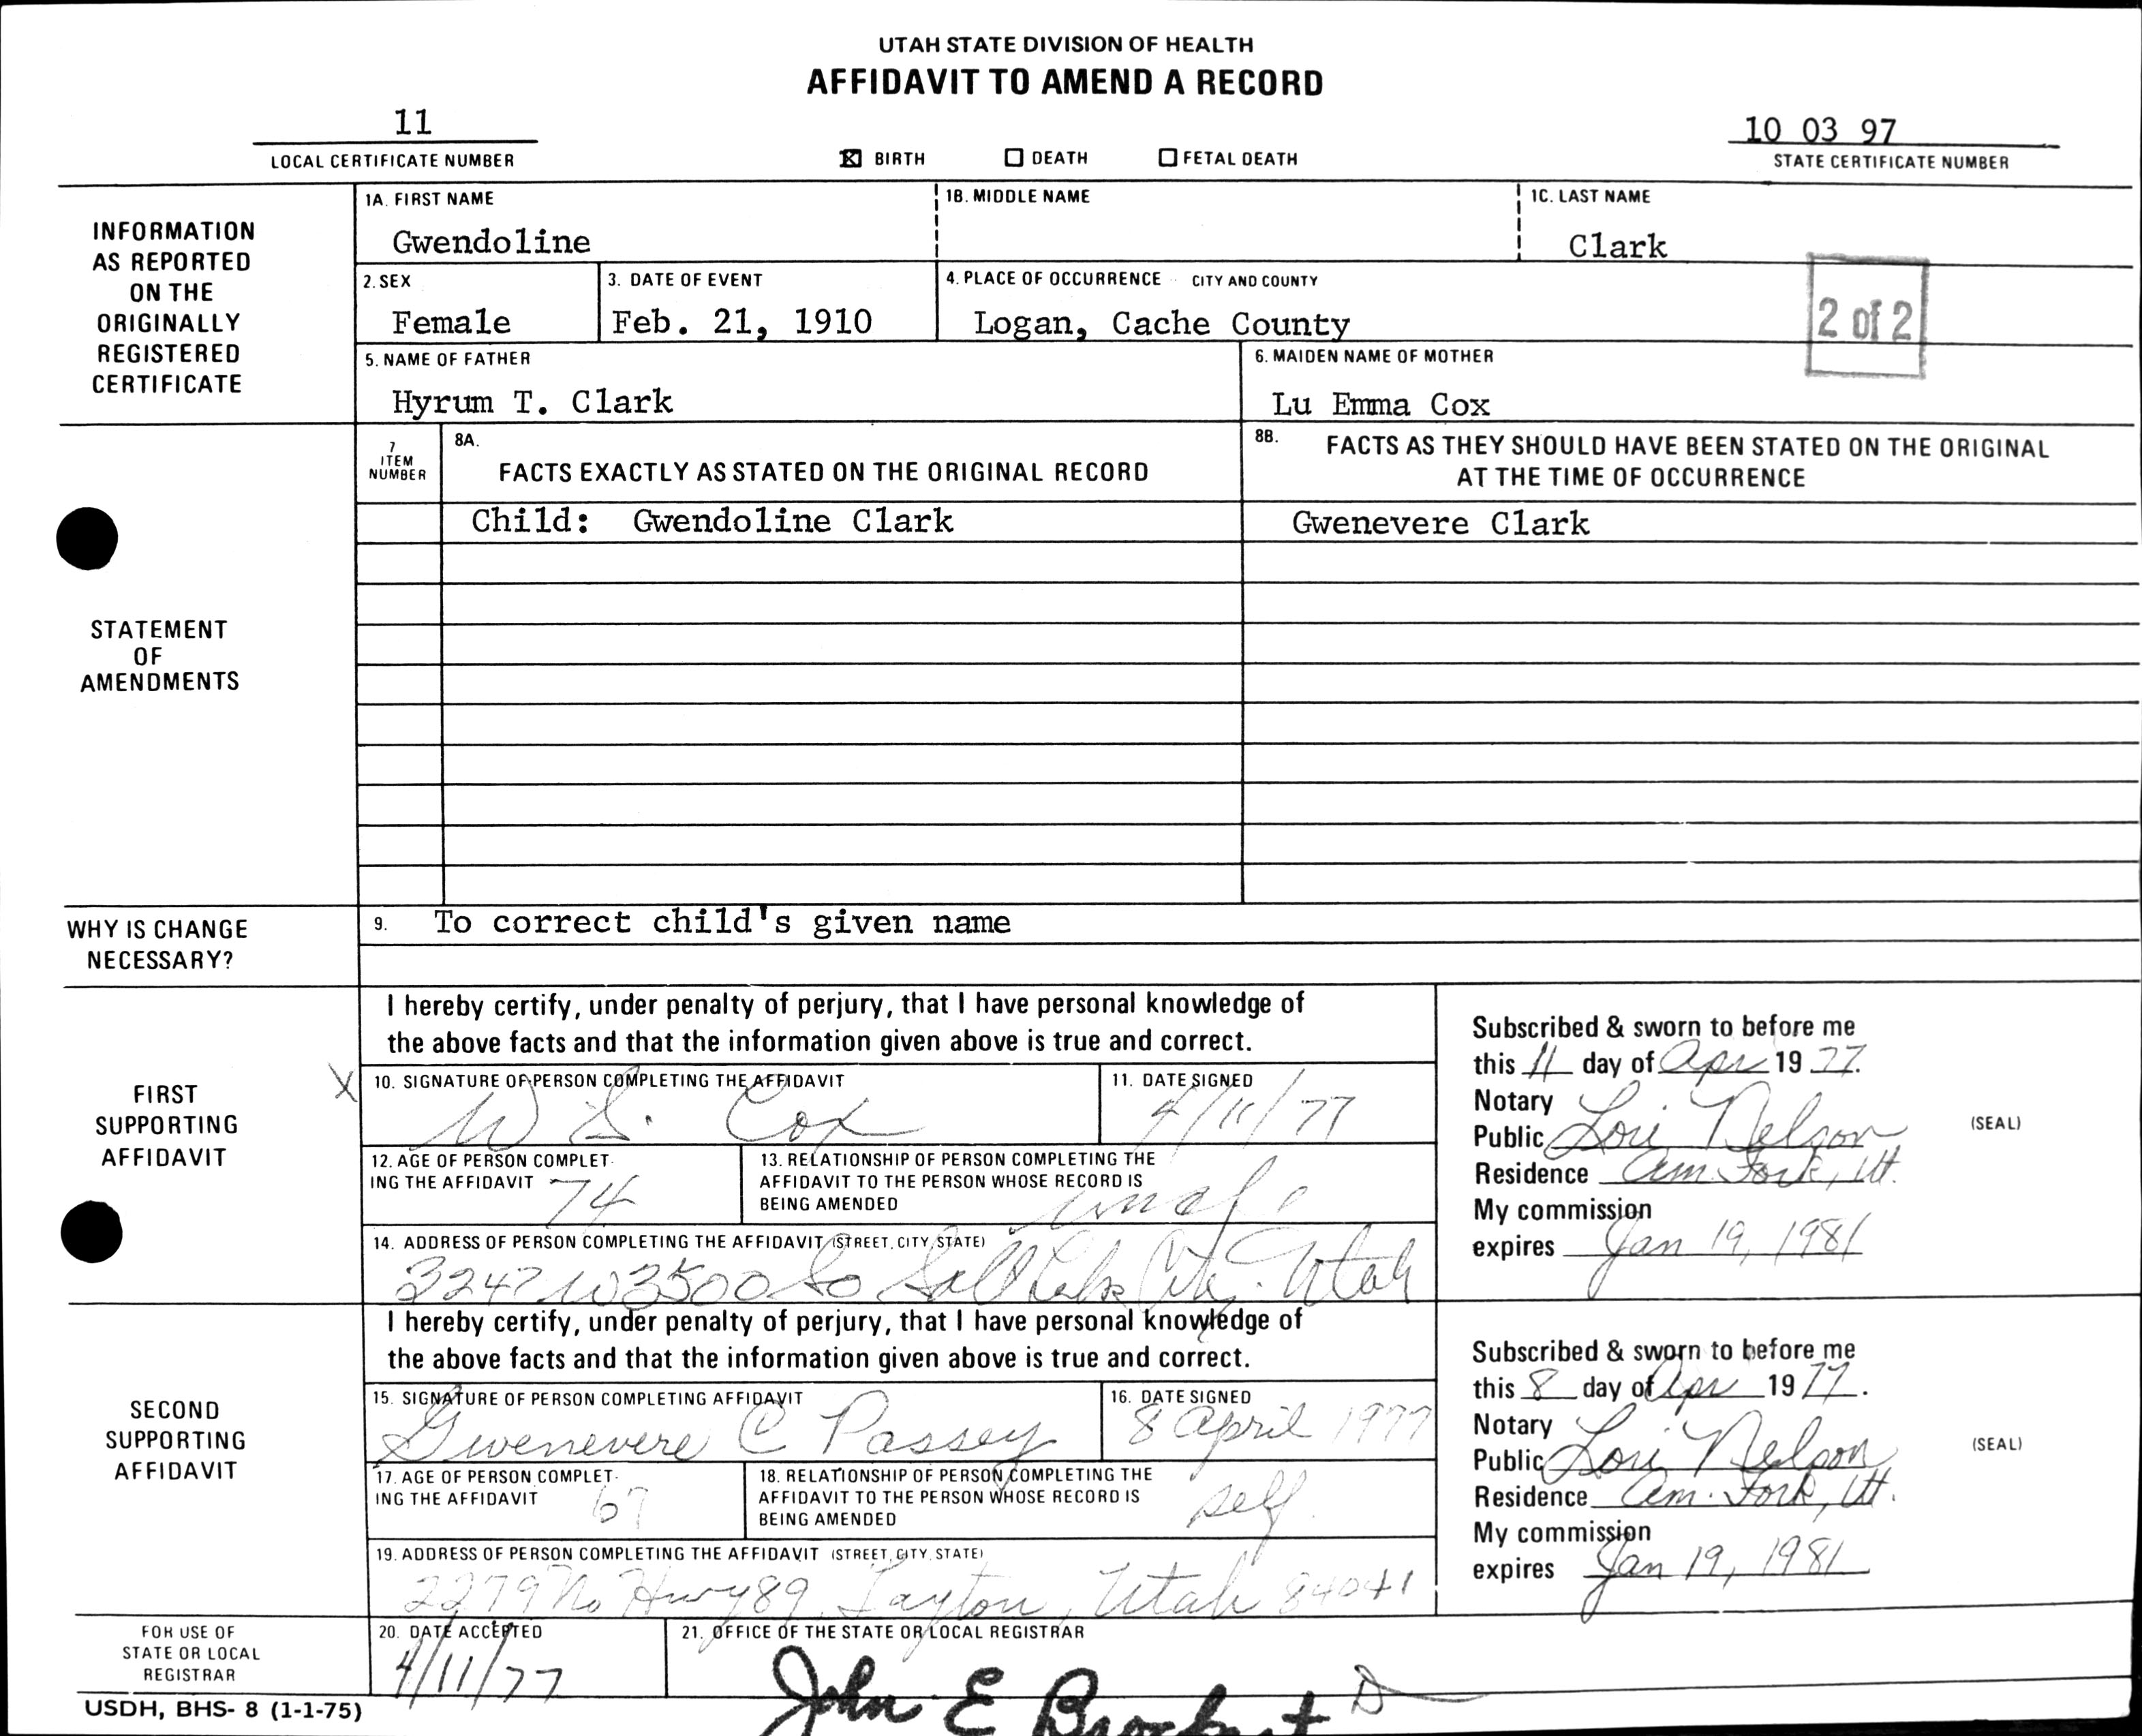 UTAH STATE DIVISION OF HEALTH
AFFIDAVIT TO AMEND A RECORD
11
LOCAL CERTIFICATE NUMBER
☒ BIRTH ☐ DEATH ☐ FETAL DEATH
10 03 97
STATE CERTIFICATE NUMBER
INFORMATION
AS REPORTED
ON THE
ORIGINALLY
REGISTERED
CERTIFICATE
1A. FIRST NAME
Gwendoline
1B. MIDDLE NAME
1C. LAST NAME
Clark
2. SEX
Female
3. DATE OF EVENT
Feb. 21, 1910
4. PLACE OF OCCURRENCE CITY AND COUNTY
Logan, Cache County
2 of 2
5. NAME OF FATHER
Hyrum T. Clark
6. MAIDEN NAME OF MOTHER
Lu Emma Cox
STATEMENT
OF
AMENDMENTS
7
ITEM
NUMBER
8A.
FACTS EXACTLY AS STATED ON THE ORIGINAL RECORD
8B. FACTS AS THEY SHOULD HAVE BEEN STATED ON THE ORIGINAL
AT THE TIME OF OCCURRENCE
Child: Gwendoline Clark
Gwenevere Clark
WHY IS CHANGE
NECESSARY?
9. To correct child's given name
FIRST
SUPPORTING
AFFIDAVIT
I hereby certify, under penalty of perjury, that I have personal knowledge of
the above facts and that the information given above is true and correct.
X
10. SIGNATURE OF PERSON COMPLETING THE AFFIDAVIT
W S. Cox
11. DATE SIGNED
4/11/77
12. AGE OF PERSON COMPLET-
ING THE AFFIDAVIT 74
13. RELATIONSHIP OF PERSON COMPLETING THE
AFFIDAVIT TO THE PERSON WHOSE RECORD IS
BEING AMENDED
14. ADDRESS OF PERSON COMPLETING THE AFFIDAVIT (STREET, CITY, STATE)
3247 W 3500 So Salt Lake City. Utah
Subscribed & sworn to before me
this 11 day of Apr 1977.
Notary
Public Lori Nelson
(SEAL)
Residence Am. Fork, Ut.
My commission
expires Jan 19, 1981
SECOND
SUPPORTING
AFFIDAVIT
I hereby certify, under penalty of perjury, that I have personal knowledge of
the above facts and that the information given above is true and correct.
15. SIGNATURE OF PERSON COMPLETING AFFIDAVIT
Gwenevere C Passey
16. DATE SIGNED
8 April 1977
17. AGE OF PERSON COMPLET-
ING THE AFFIDAVIT 67
18. RELATIONSHIP OF PERSON COMPLETING THE
AFFIDAVIT TO THE PERSON WHOSE RECORD IS
BEING AMENDED
self
19. ADDRESS OF PERSON COMPLETING THE AFFIDAVIT (STREET, CITY, STATE)
2279 No Hwy 89, Layton, Utah 84041
Subscribed & sworn to before me
this 8 day of Apr 1977.
Notary
Public Lori Nelson
(SEAL)
Residence Am. Fork, Ut.
My commission
expires Jan 19, 1981
FOR USE OF
STATE OR LOCAL
REGISTRAR
20. DATE ACCEPTED
4/11/77
21. OFFICE OF THE STATE OR LOCAL REGISTRAR
John E
USDH, BHS- 8 (1-1-75)